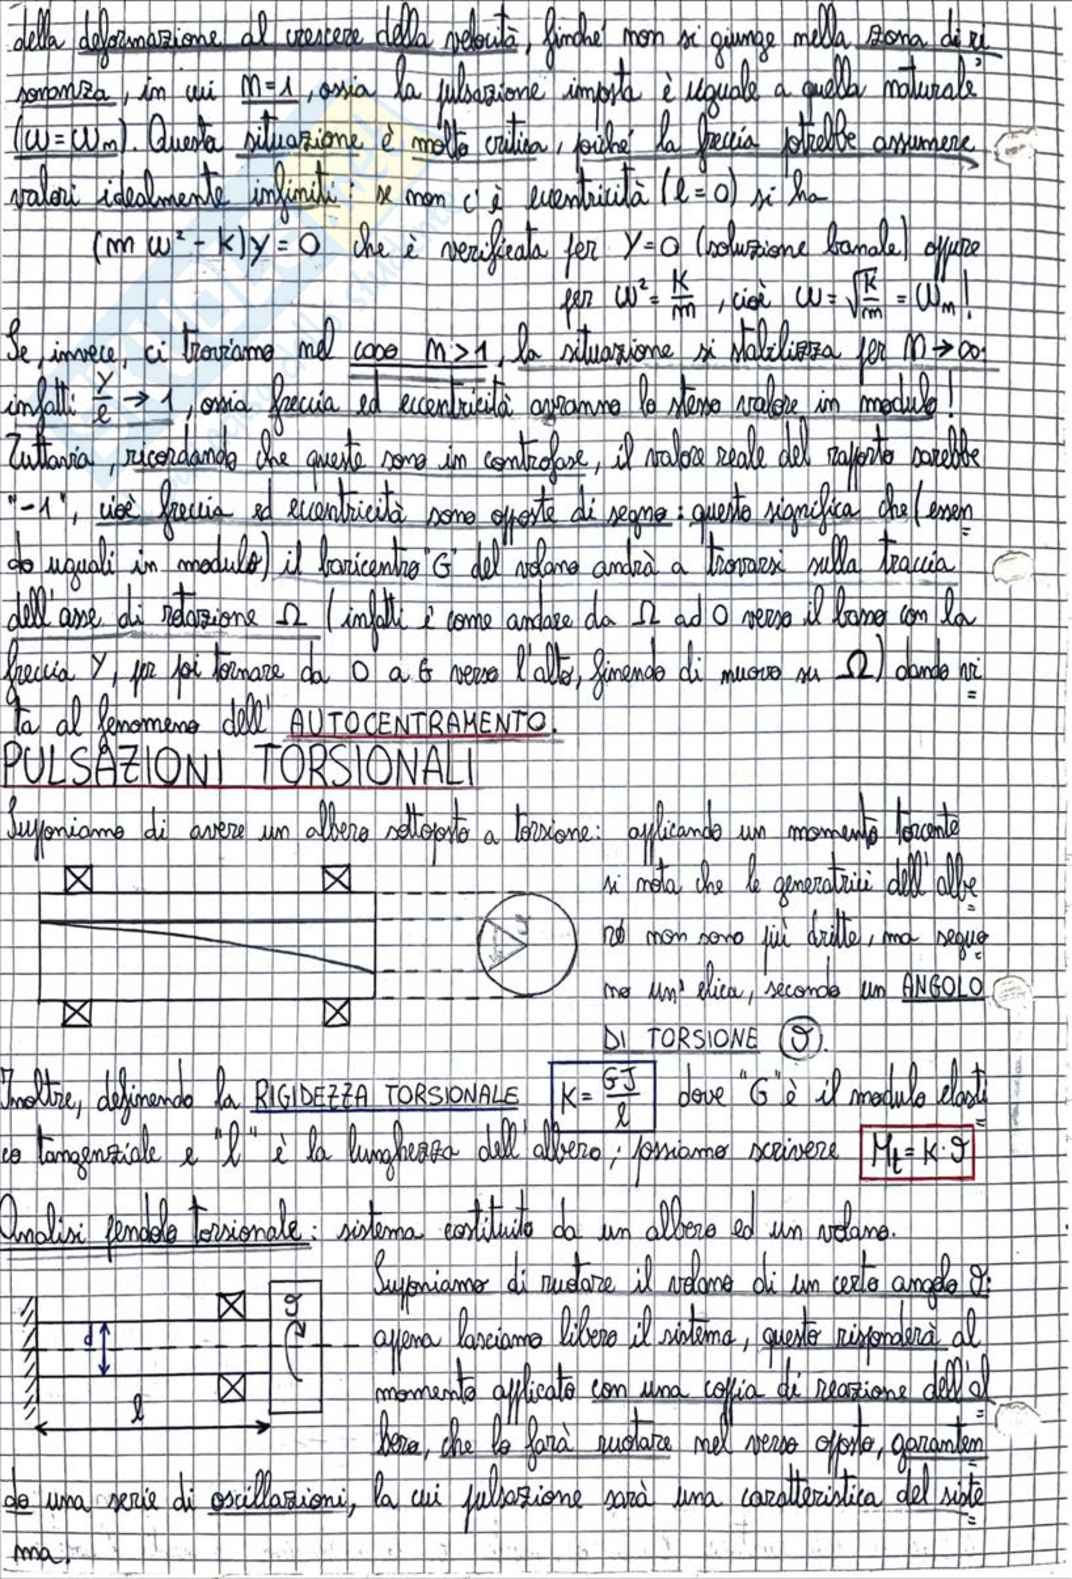 della deformazione al crescere della velocità, finché non si giunge nella zona di ri
sonanza, in cui n=1, ossia la pulsazione imposta è uguale a quella naturale
(ω=ωn). Questa situazione è molto critica, poiché la freccia potrebbe assumere
valori idealmente infiniti se non c'è eccentricità (e=0) si ha
(m ω² - k)y = 0 che è verificata per Y=0 (soluzione banale) oppure
per ω² = K/m, cioè ω = √K/m = ωn!
Se, invece, ci troviamo nel caso n>1, la situazione si stabilizza per n→∞:
infatti Y/e → 1, ossia freccia ed eccentricità avranno lo stesso valore in modulo!
Tuttavia, ricordando che queste sono in controfase, il valore reale del rapporto sarebbe
"-1", cioè freccia ed eccentricità sono opposte di segno: questo significa che (essen
do uguali in modulo) il baricentro "G" del volano andrà a trovarsi sulla traccia
dell'asse di rotazione Ω (infatti è come andare da Ω ad O verso il basso con la
freccia Y, per poi tornare da O a G verso l'alto, finendo di nuovo su Ω) dando vi
ta al fenomeno dell' AUTOCENTRAMENTO.
PULSAZIONI TORSIONALI
Supponiamo di avere un albero sottoposto a torsione: applicando un momento torcente
si nota che le generatrici dell'albe
ro non sono più dritte, ma seguo
no un' elica, secondo un ANGOLO
DI TORSIONE ϑ.
Inoltre, definendo la RIGIDEZZA TORSIONALE K = GJ/l dove "G" è il modulo elasti
co tangenziale e "l" è la lunghezza dell'albero; possiamo scrivere Mt = K·ϑ
Analisi pendolo torsionale: sistema costituito da un albero ed un volano.
Supponiamo di ruotare il volano di un certo angolo ϑ:
ϑ
d
appena lasciamo libero il sistema, questo risponderà al
momento applicato con una coppia di reazione dell'al
l
bero, che lo farà ruotare nel verso opposto, garanten
do una serie di oscillazioni, la cui pulsazione sarà una caratteristica del siste
ma.